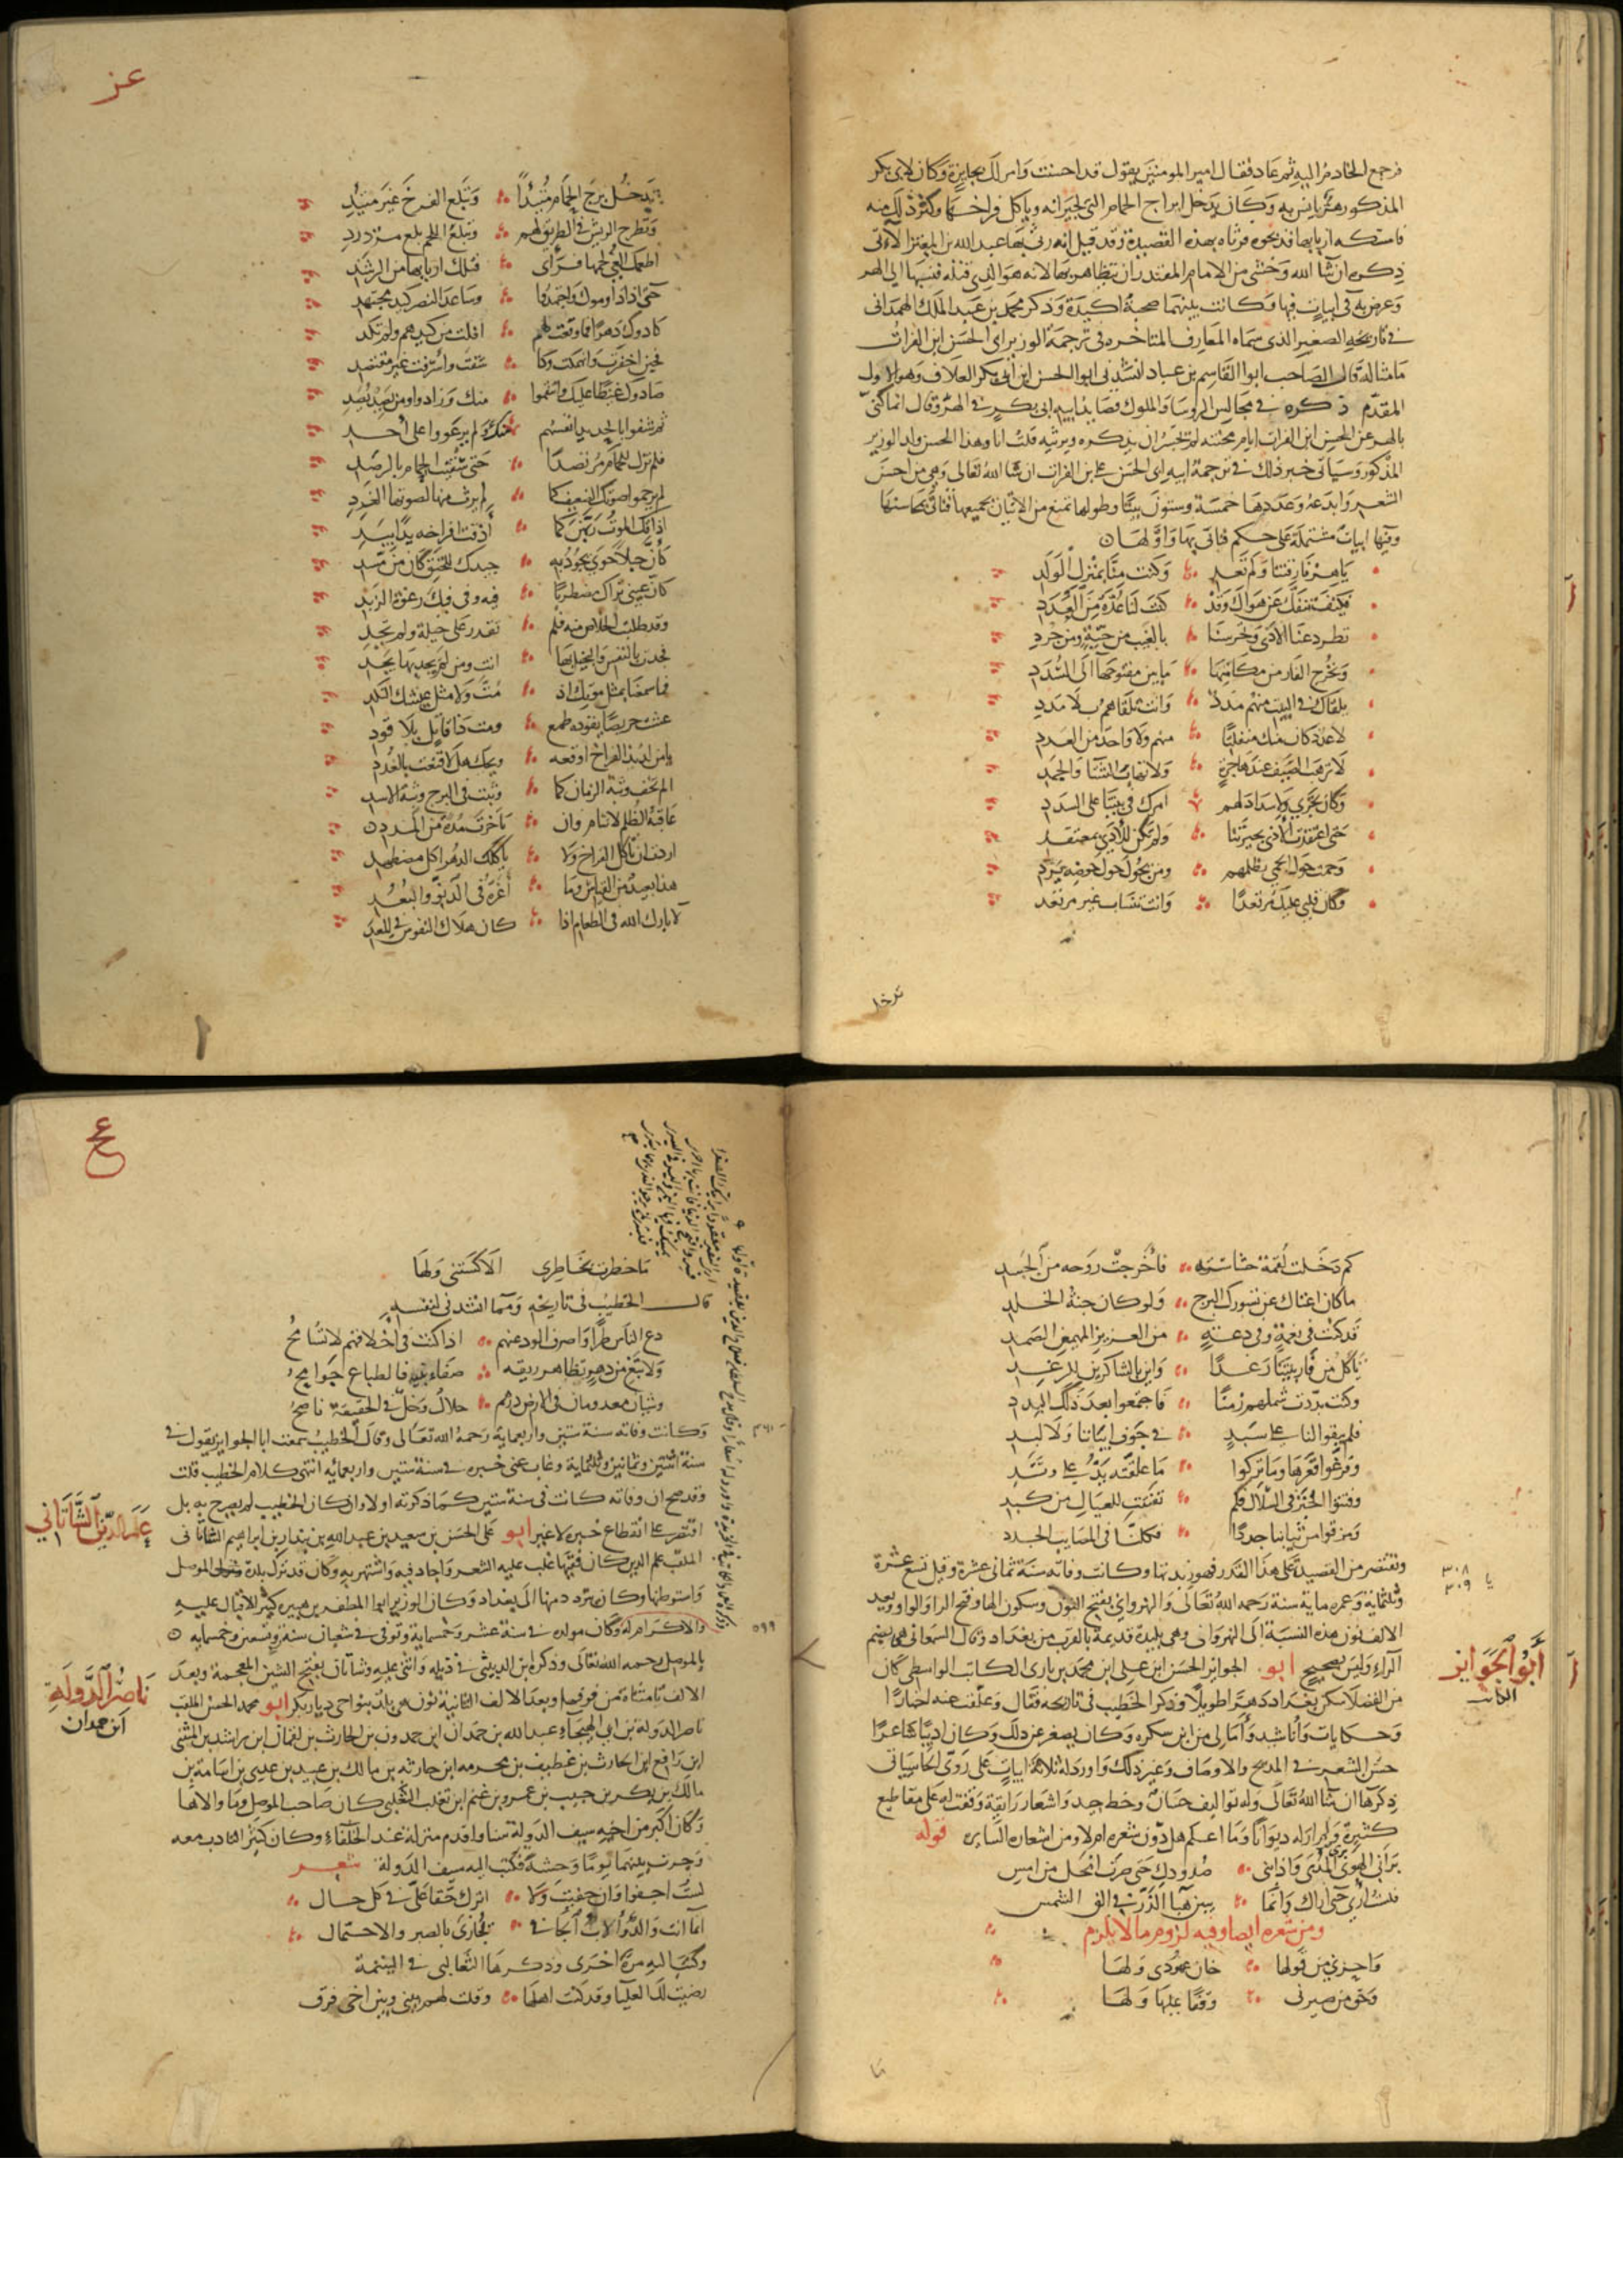 فرجع الخادم اليه ثم عاد فقال امير المومنين يقول قد احسنت وامر لك بجايزة وكان لابي بكر
المذكور هر يانس به وكان يدخل ابراج الحمام التي لجيرانه وياكل فراخها وكثر ذلك منه
فامسكه اربابها فذبحوه فرثاه بهذه القصيدة وقد قيل انه رثى بها عبد الله بن المعتز الاتي
ذكره ان شا الله وخشى من الامام المقتدر ان يتظاهر بها لانه هو الذي قتله فنسبها الى الهر
وعرض به في ابيات فيها وكانت بينهما صحبة اكيدة وذكر محمد بن عبد الملك الهمداني
في تاريخه الصغير الذي سماه المعارف المتاخرة في ترجمة الوزير ابي الحسن ابن الفرات
ما مثاله قال الصاحب ابوا القاسم بن عباد انشدني ابوا الحسن ابن ابي بكر العلاف وهو الاول
المقدم ذكره في مجالس الروسا والملوك قصايد ابيه ابي بكر في الهر وقال انما كنى
بالهر عن المحسن ابن الفرات ايام محنته لم تجسر ان يذكره ويرثيه قلت انا وهذا المحسن ولد الوزير
المذكور وسياتي خبر ذلك في ترجمة ابيه ابي الحسن علي بن الفرات ان شا الله تعالى وهي من احسن
الشعر وابدعه وعددها خمسة وستون بيتا وطولها تمنع من الاتيان بجميعها فناتي بمحاسنها
وفيها ابيات مشتملة على حكم فناتي بها واولها
يا هر فارقتنا ولم تعد وكنت منا بمنزل الولد
فكيف ننفك عن هواك وقد كنت لنا عدة من العدد
تطرد عنا الاذى وتحرسنا بالغيب من حية ومن جرد
وتخرج الفار من مكامنها ما بين مفتوحها الى السدد
يلقاك في البيت منهم مدد وانت تلقاهم بلا مدد
لا عدد كان منك منفلتا منهم ولا واحد من العدد
لا ترهب الصيف عند هاجرة ولا تهاب الشتا والجمد
وكان يجري ولا سداد لهم امرك في بيتنا على السدد
حتى اعتقدت الاذى بجيرتنا ولم تكن للاذى بمعتقد
وحمت حول الحمى بظلمهم ومن يحول حول حوضه يرد
وكان قلبي عليك مرتعدا وانت تنساب غير مرتعد
تدخل
عز
تدخل برج الحمام متئدا وتبلع الفرخ غير متئد
وتطرح الريش في الطريق لهم وتبلع اللحم بلع مزدرد
اطعمك الغي لحمها فراى قتلك اربابها من الرشد
حتى اذا داوموك واجتهدوا وساعد النصر كيد مجتهد
كادوك دهرا فما وقعت لهم افلت من كيدهم ولم تكد
فحين اخفرت وانهمكت وكا شفت واسرفت غير مقتصد
صادوك غيظا عليك وانتقموا منك وزادوا ومن يصد يصد
ثم شفوا بالحديد انفسهم منك ولم يرعووا على احد
فلم تزل للحمام مرتصدا حتى سقيت الحمام بالرصد
لم يرحموا صوتك الضعيف كما لم يرث منها لصوتها الغرد
اذاقك الموت ربهن كما اذقت افراخه يدا بيد
كان حبلا حوى بجودته جيدك للخنق كان من مسد
كان عيني تراك مضطربا فيه وفي فيك رغوة الزبد
وقد طلبت الخلاص منه فلم تقدر على حيلة ولم تجد
فجدت بالنفس والبخيل بها انت ومن لم يجد بها يجد
فما سمعنا بمثل موتك اذ مت ولا مثل عيشك النكد
عشت حريصا يقوده طمع ومت ذا قاتل بلا قود
يا من لذيذ الفراخ اوقعه ويحك هلا قنعت بالغدد
الم تخف وثبة الزمان كما وثبت في البرج وثبة الاسد
عاقبة الظلم لا تنام وان تاخرت مدة من المدد
اردت ان تاكل الفراخ ولا ياكلك الدهر اكل مضطهد
هذا بعيد من القياس وما اغره في الدنو والبعد
لا بارك الله في الطعام اذا كان هلاك النفوس في المعد
كم دخلت لقمة حشا شره فاخرجت روحه من الجسد
ما كان اغناك عن تسورك البرج ولو كان جنة الخلد
قد كنت في نعمة وفي دعة من العزيز المهيمن الصمد
تاكل من فار بيتنا رغدا واين بالشاكرين للرغد
وكنت بددت شملهم زمنا فاجتمعوا بعد ذلك البدد
فلم يبقوا لنا على سبد في جوف ابياتنا ولا لبد
وفرغوا قعرها وما تركوا ما علقته يد على وتد
وفتتوا الخبز في السلال فكم تفتت للعيال من كبد
ومزقوا من ثيابنا جددا فكلنا في المصايب الجدد
ونقتصر من القصيدة على هذا القدر فهو زبدتها وكانت وفاته سنة ثماني عشرة وقيل تسع عشرة
وثلثماية وعمره ماية سنة رحمه الله تعالى والنهرواني بفتح النون وسكون الها وفتح الرا والواو وبعد
الالف نون هذه النسبة الى النهروان وهي بليدة قديمة بالقرب من بغداد وقال السمعاني هي بضم
الراء وليس بصحيح ابو الجوايز الحسن ابن علي ابن محمد بن باري الكاتب الواسطي كان
من الفضلا سكن بغداد دهرا طويلا وذكر الخطيب في تاريخه فقال وعلقت عنه اخبارا
وحكايات واناشيد وامالي من ابن سكره وكان يصغر عن ذلك وكان اديبا شاعرا
حسن الشعر في المديح والاوصاف وغير ذلك واورد له ثلاثة ابيات على روي الحا سياتي
ذكرها ان شا الله تعالى وله تواليف حسان وخط جيد واشعار رايقة وقفت له على مقاطيع
كثيرة ولم ار له ديوانا وما اعلم هل دون شعره ام لا ومن اشعاره السايره قوله
براني الهوى بري المدى واذابني صدودك حتى صرت انحل من امس
فلست ارى حتى اراك وانما يبين هبا الذر في الق الشمس
ومن شعره ايضا وفيه لزوم ما لا يلزم
واحزني من قولها خان عهودي ولها
وحق من صيرني وقفا عليها ولها
٣٠٨
٣٠٩
أبو الجوايز
الكاتب
ع
ما خطرت بخاطري الا كستني ولها
قال الخطيب في تاريخه ومما انشدني لنفسه
دع الناس طرا واصرف الود عنهم اذا كنت في اخلاقهم لا تسامح
ولا تبغ من دهر تظاهر رنقه صفاء بنيه فالطباع جوامح
وشيان معدومان في الارض درهم حلال وخل في الحقيقة ناصح
وكانت وفاته سنة ستين واربعماية رحمه الله تعالى وقال الخطيب سمعت ابا الجوايز يقول في
سنة اثنتين وثمانين وثلثماية وغاب عني خبره في سنة ستين واربعمائه انتهى كلام الخطيب قلت
وقد صح ان وفاته كانت في سنة ستين كما ذكرته اولا وان كان الخطيب لم يصرح به بل
اقتصر على انقطاع خبره لا غير ابو علي الحسن بن سعيد بن عبد الله بن بندار بن ابراهيم الشاتاني
الملقب علم الدين كان فقيها غلب عليه الشعر واجاد فيه واشتهر به وكان قد ترك بلده ونزل الموصل
واستوطنها وكان يتردد منها الى بغداد وكان الوزير ابوا المظفر بن هبيره كثير الاقبال عليه
والاكرام له وكان مولده في سنة عشر وخمسماية وتوفي في شعبان سنة وتسعين وخمسمايه
بالموصل رحمه الله تعالى وذكره ابن الدبيثي في ذيله واثنى عليه وشاتان بفتح الشين المعجمة وبعد
الالف تا مثناة من فوقها وبعد الالف الثانية نون هي بلد بنواحي ديار بكر ابو محمد الحسن الملقب
ناصر الدولة بن ابي الهيجاء عبد الله بن حمدان ابن حمدون بن الحارث بن لقمان ابن راشد بن المثنى
ابن رافع ابن الحارث بن غطيف بن محرمه ابن حارثه بن مالك بن عبيد بن عدي بن اسامة بن
مالك بن بكر بن حبيب بن عمرو بن غنم ابن تغلب التغلبي كان صاحب الموصل وما والاها
وكان اكبر من اخيه سيف الدولة سنا واقدم منزلة عند الخلفاء وكان كثير التادب معه
وجرت بينهما يوما وحشة فكتب اليه سيف الدولة شعر
لست اجفوا وان جفيت ولا اترك حقا علي في كل حال
انما انت والد والاب الجافي يجازى بالصبر والاحتمال
وكتب اليه مرة اخرى وذكرها الثعالبي في اليتيمة
رضيت لك العليا وقد كنت اهلها وقلت لهم بيني وبين اخي فرق
علم الدين الشاتاني
٥٩٩
ناصر الدولة
ابن حمدان